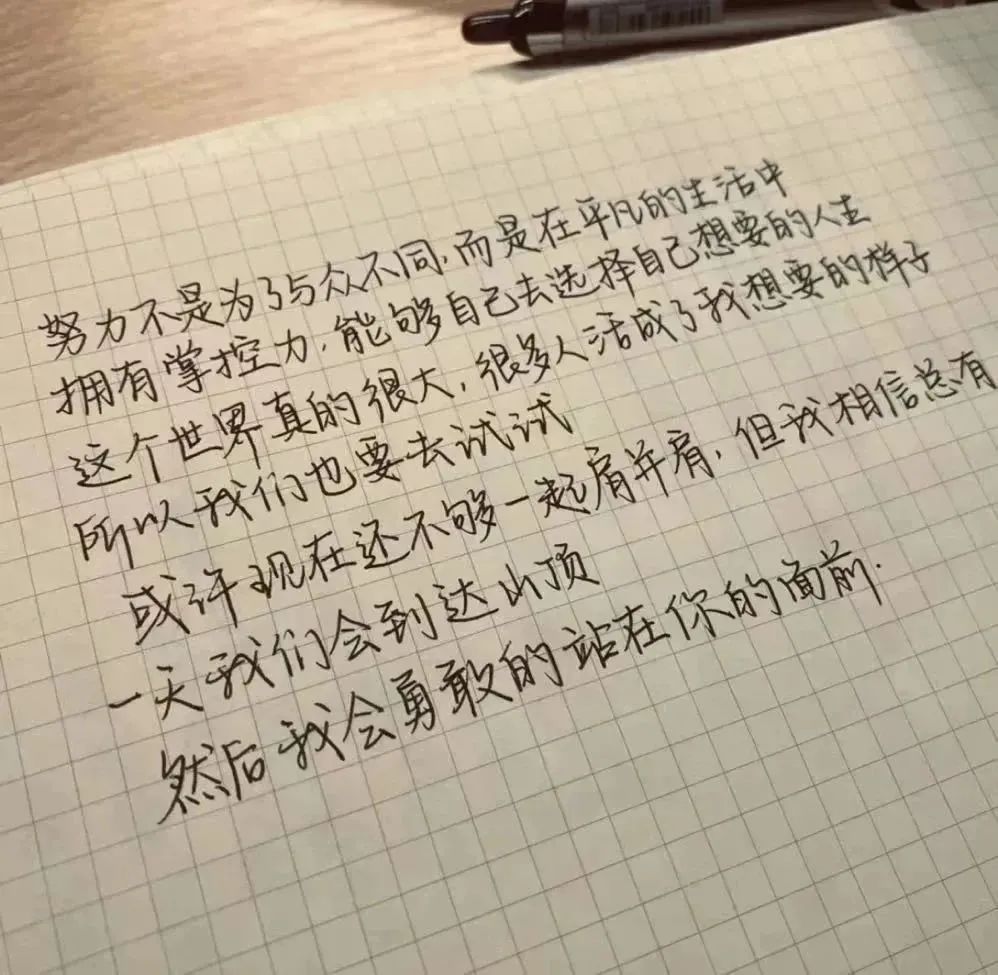 努力不是为了与众不同,而是在平凡的生活中
拥有掌控力,能够自己去选择自己想要的人生
这个世界真的很大,很多人活成了我想要的样子
所以我们也要去试试
或许现在还不够一起肩并肩,但我相信总有
一天我们会到达山顶
然后我会勇敢的站在你的面前.